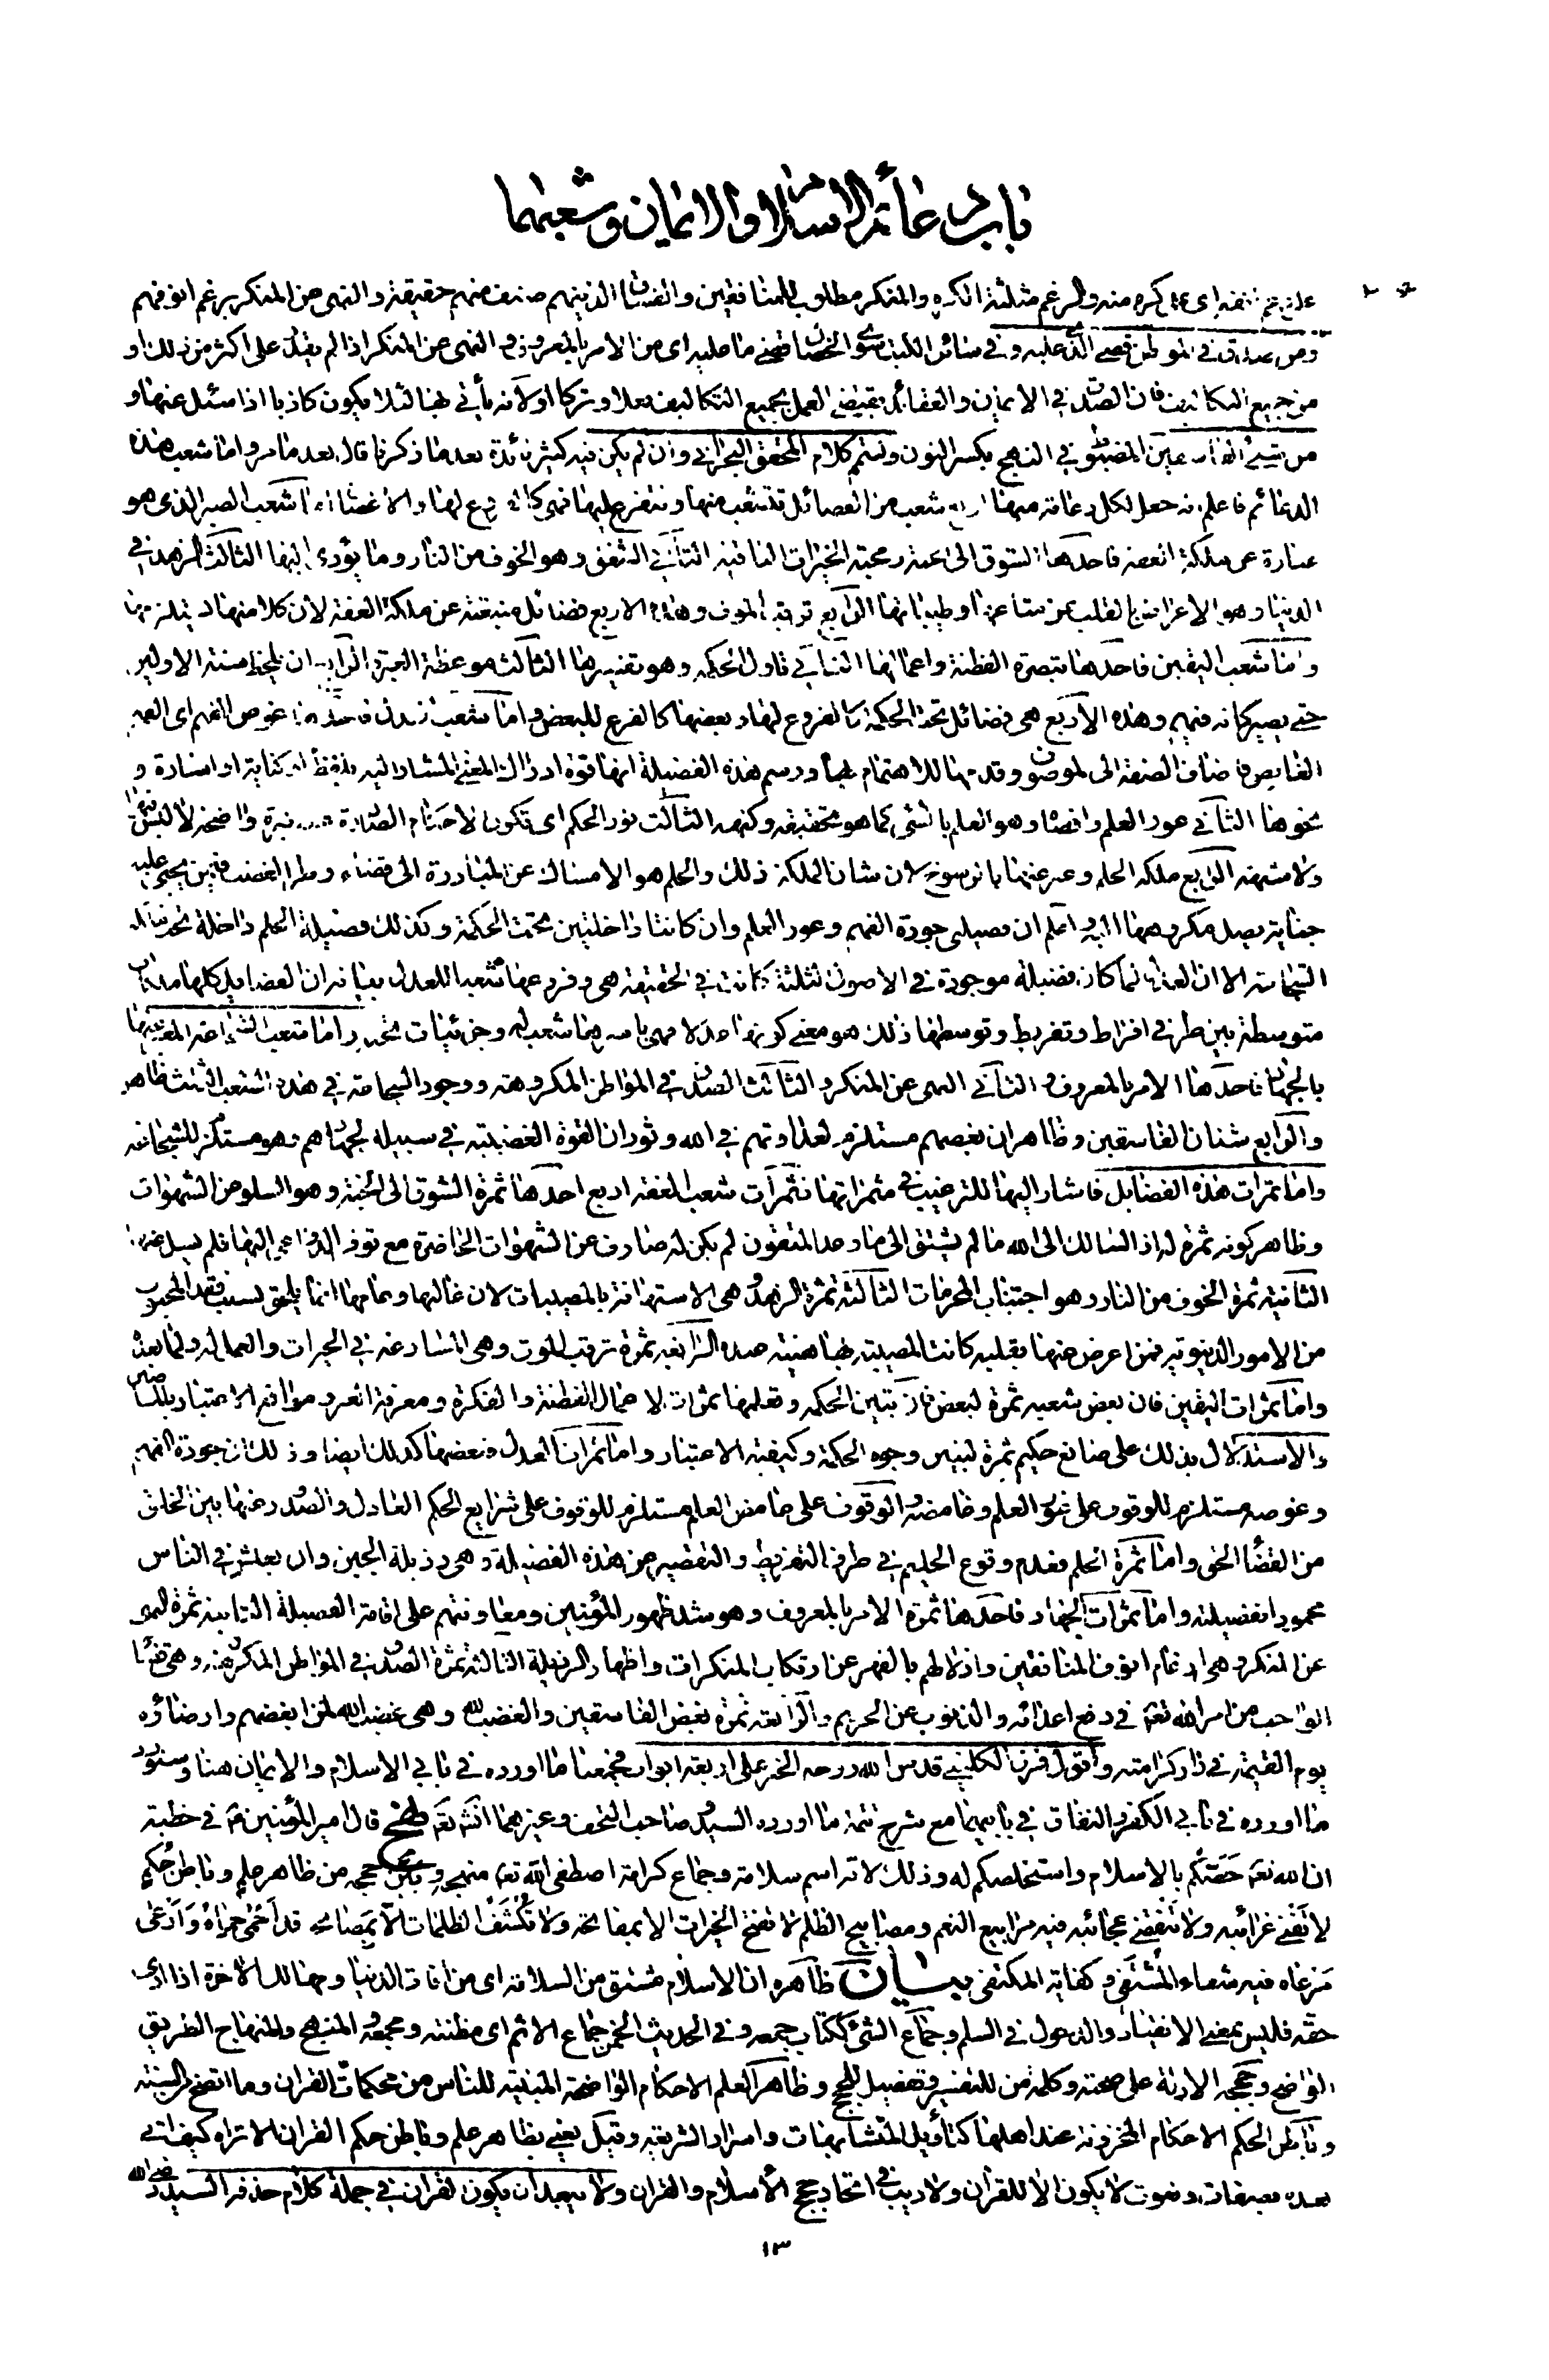 باب دعائم الاسلام والايمان وشعبهما
كره منه والرغم مثلثة الكره والمنكر مطلوب للمنافقين والفساق الذينهم صنف منهم حقيقة والنهى عن المنكر يرغم انوفهم
ومن صدق في المواطن قضى الذي عليه وفي سائر الكتب سوى الخصال قضى ما عليه اى من الامر بالمعروف والنهى عن المنكر اذا لم يقدر على اكثر من ذلك او
من جميع التكاليف فان الصدق في الايمان والعقائد يقتضى العمل بجميع التكاليف فعلا وتركا او لانه يأتي بها لئلا يكون كاذبا اذا سئل عنها و
من المضبوط في النهج بكسر النون ولنتم كلام المحقق البحراني وان لم يكن فيه كثير فائدة بعد ما ذكرنا قال بعد ما مر واما شعب هذه
الدعائم فاعلم انه جعل لكل دعامة منها اربع شعب من الفضائل تتشعب منها وتتفرع عليها فهى كالفروع لها والاغصان اما شعب الصبر الذى هو
عبارة عن ملكة العفة فاحدها الشوق الى الجنة ومحبة الخيرات الباقية الثاني الشفق وهو الخوف من النار وما يؤدى اليها الثالث الزهد في
الدنيا وهو الاعراض بالقلب عن متاعها وطيباتها الرابع ترقب الموت وهذه الاربع فضائل منبعثة عن ملكة العفة لان كلا منها يستلزمها
واما شعب اليقين فاحدها تبصرة الفطنة واعمالها الثاني تاول الحكمة وهو تفسيرها الثالث موعظة العبرة الرابع ان يلحظ سنة الاولين
حتى يصير كانه فيهم وهذه الاربع هى فضائل تحت الحكمة كالفروع لها وبعضها كالفرع للبعض واما شعب العدل فاحدها غوص الفهم اى الفهم
الغايص فاضاف الصفة الى الموصوف وقدمها للاهتمام بها ورسم هذه الفضيلة انها قوة ادراك المعنى المشار اليه بلفظ او كتابة او اشارة و
نحوها الثاني غور العلم واقصاه وهو العلم بالشئ كما هو بحقيقته وكنهه الثالث نور الحكم اى تكون الاحكام الصادرة نيرة واضحة لا لبس فيها
ولا شبهة الرابع ملكة الحلم وعبر عنها بالرسوخ لان شان الملكة ذلك والحلم هو الامساك عن المبادرة الى قضاء وطر الغضب فيمن يجنى عليه
جناية يصل مكروهها اليه واعلم ان فضيلتى جودة الفهم وغور العلم وان كانتا داخلتين تحت الحكمة وكذلك فضيلة الحلم داخلة تحت ملكة
الشجاعة الا ان العدل لما كان فضيلة موجودة في الاصول الثلثة كانت في الحقيقة هى وفروعها شعبا للعدل بيانه ان الفضايل كلها ملكات
متوسطة بين طرفي افراط وتفريط وتوسطها ذلك هو معنى كونها عدلا فهى باسرها شعب له وجزئيات تحته واما شعب الشجاعة المعبر عنها
بالجهاد فاحدها الامر بالمعروف والثاني النهى عن المنكر والثالث الصدق في المواطن المكروهة ووجود الشجاعة في هذه الشعب الثلث ظاهر
والرابع شنان الفاسقين وظاهر ان بغضهم مستلزم لعداوتهم في الله وثوران القوة الغضبية في سبيله لجهادهم وهو مستلزم للشجاعة
واما ثمرات هذه الفضايل فاشار اليها للترغيب في مثمراتها فثمرات شعب العفة اربع احدها ثمرة الشوق الى الجنة وهو السلو عن الشهوات
وظاهر كونه ثمرة له اذ السالك الى الله ما لم يشتق الى ما وعد المتقون لم يكن له صارف عن الشهوات الحاضرة مع توفر الدواعى اليها فلم يسل عنها
الثانية ثمرة الخوف من النار وهو اجتناب المحرمات الثالثة ثمرة الزهد وهى الاستهانة بالمصيبات لان غالبها وعامها انما يلحق بسبب فقد المحبوب
من الامور الدنيوية فمن اعرض عنها بقلبه كانت المصيبة بها هينة عنده الرابعة ثمرة ترقب الموت وهى المسارعة في الخيرات والعمل له ولما بعده
واما ثمرات اليقين فان بعض شعبه ثمرة لبعض فان تبين الحكمة وتعلمها ثمرات لاعمال الفطنة والفكرة ومعرفة العبر ومواقع الاعتبار بالماضين
والاستدلال بذلك على صانع حكيم ثمرة لتبين وجوه الحكمة وكيفية الاعتبار واما ثمرات العدل فبعضها كذلك ايضا وذلك ان جودة الفهم
وغوصه مستلزم للوقوف على غور العلم وغامضه والوقوف على غامض العلم مستلزم للوقوف على شرايع الحكم العادل والصدر عنها بين الخلق
من القضاء الحق واما ثمرة الحلم فعدم وقوع الحليم في طرف التفريط والتقصير عن هذه الفضيلة وهى رذيلة الجبن وان يعيش في الناس
محمودا بفضيلته واما ثمرات الجهاد فاحدها ثمرة الامر بالمعروف وهو شد ظهور المؤمنين ومعاونتهم على اقامة الفضيلة الثانية ثمرة النهى
عن المنكر وهى ارغام انوف المنافقين واذلالهم بالقهر عن ارتكاب المنكرات واظهار الرذيلة الثالثة ثمرة الصدق في المواطن المكروهة وهى قضاء
الواجب من امر الله تعم في دفع اعدائه والذب عن الحريم والرابعة ثمرة بغض الفاسقين والغضب لله وهى غضب الله لمن ابغضهم وارضاؤه
يوم القيمة في دار كرامته واقول فرق الكلينى قدس الله روحه الخبر على اربعة ابواب فجمعنا ما اورده في بابي الاسلام والايمان هنا وسنورد
ما اورده في بابي الكفر والنفاق في بابيهما مع شرح تتمة ما اورده السيد وصاحب التحف وغيرهما انشاء الله تعم نهج قال امير المؤمنين ع في خطبة
ان الله تعم خصكم بالاسلام واستخلصكم له وذلك لانه اسم سلامة وجماع كرامة اصطفى الله تعم منهجه وبين حججه من ظاهر علم وباطن حكم
لا تفنى غرائبه ولا تنقضى عجائبه فيه مرابيع النعم ومصابيح الظلم لا تفتح الخيرات الا بمفاتحه ولا تكشف الظلمات الا بمصابحه قد احمى حماه وارعى
مرعاه فيه شفاء المشتفى وكفاية المكتفى بيان ظاهره ان الاسلام مشتق من السلامة اى من افات الدنيا ومهالك الاخرة اذا ادى
حقه فليس بمعنى الانقياد والدخول في السلم وجماع الشئ ككتاب جمعه وفي الحديث الخمر جماع الاثم اى مظنته ومجمعه المنهج والمنهاج الطريق
الواضح وحججه الادلة على صحته وكلمة من للتفسير وتفصيل الحجج وظاهر العلم الاحكام الواضحة المبينة للناس من محكمات القران وما اتضح من السنة
وباطن الحكم الاحكام المخزونة عند اهلها كتأويل المتشابهات واسرار الشريعة وقيل يعنى بظاهر علم وباطن حكم القران الا تراه كيف اتى
بعده بصفات ونعوت لا يكون الا للقرآن ولا ريب في اتحاد حجج الاسلام والقران ولا يبعد ان يكون القران في جملة كلام حذفه السيد رضى الله
١٣